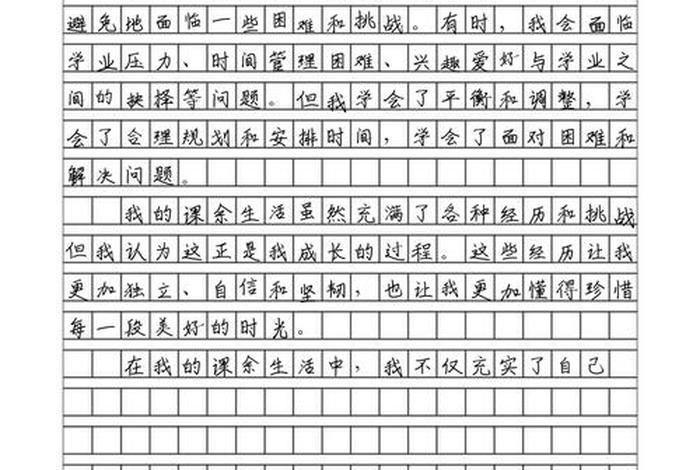 避免地面临一些困难和挑战。有时，我会面临
学业压力、时间管理困难、兴趣爱好与学业之
间的抉择等问题。但我学会了平衡和调整，学
会了合理规划和安排时间，学会了面对困难和
解决问题。
我的课余生活虽然充满了各种经历和挑战
但我认为这正是我成长的过程。这些经历让我
更加独立、自信和坚韧，也让我更加懂得珍惜
每一段美好的时光。
在我的课余生活中，我不仅充实了自己